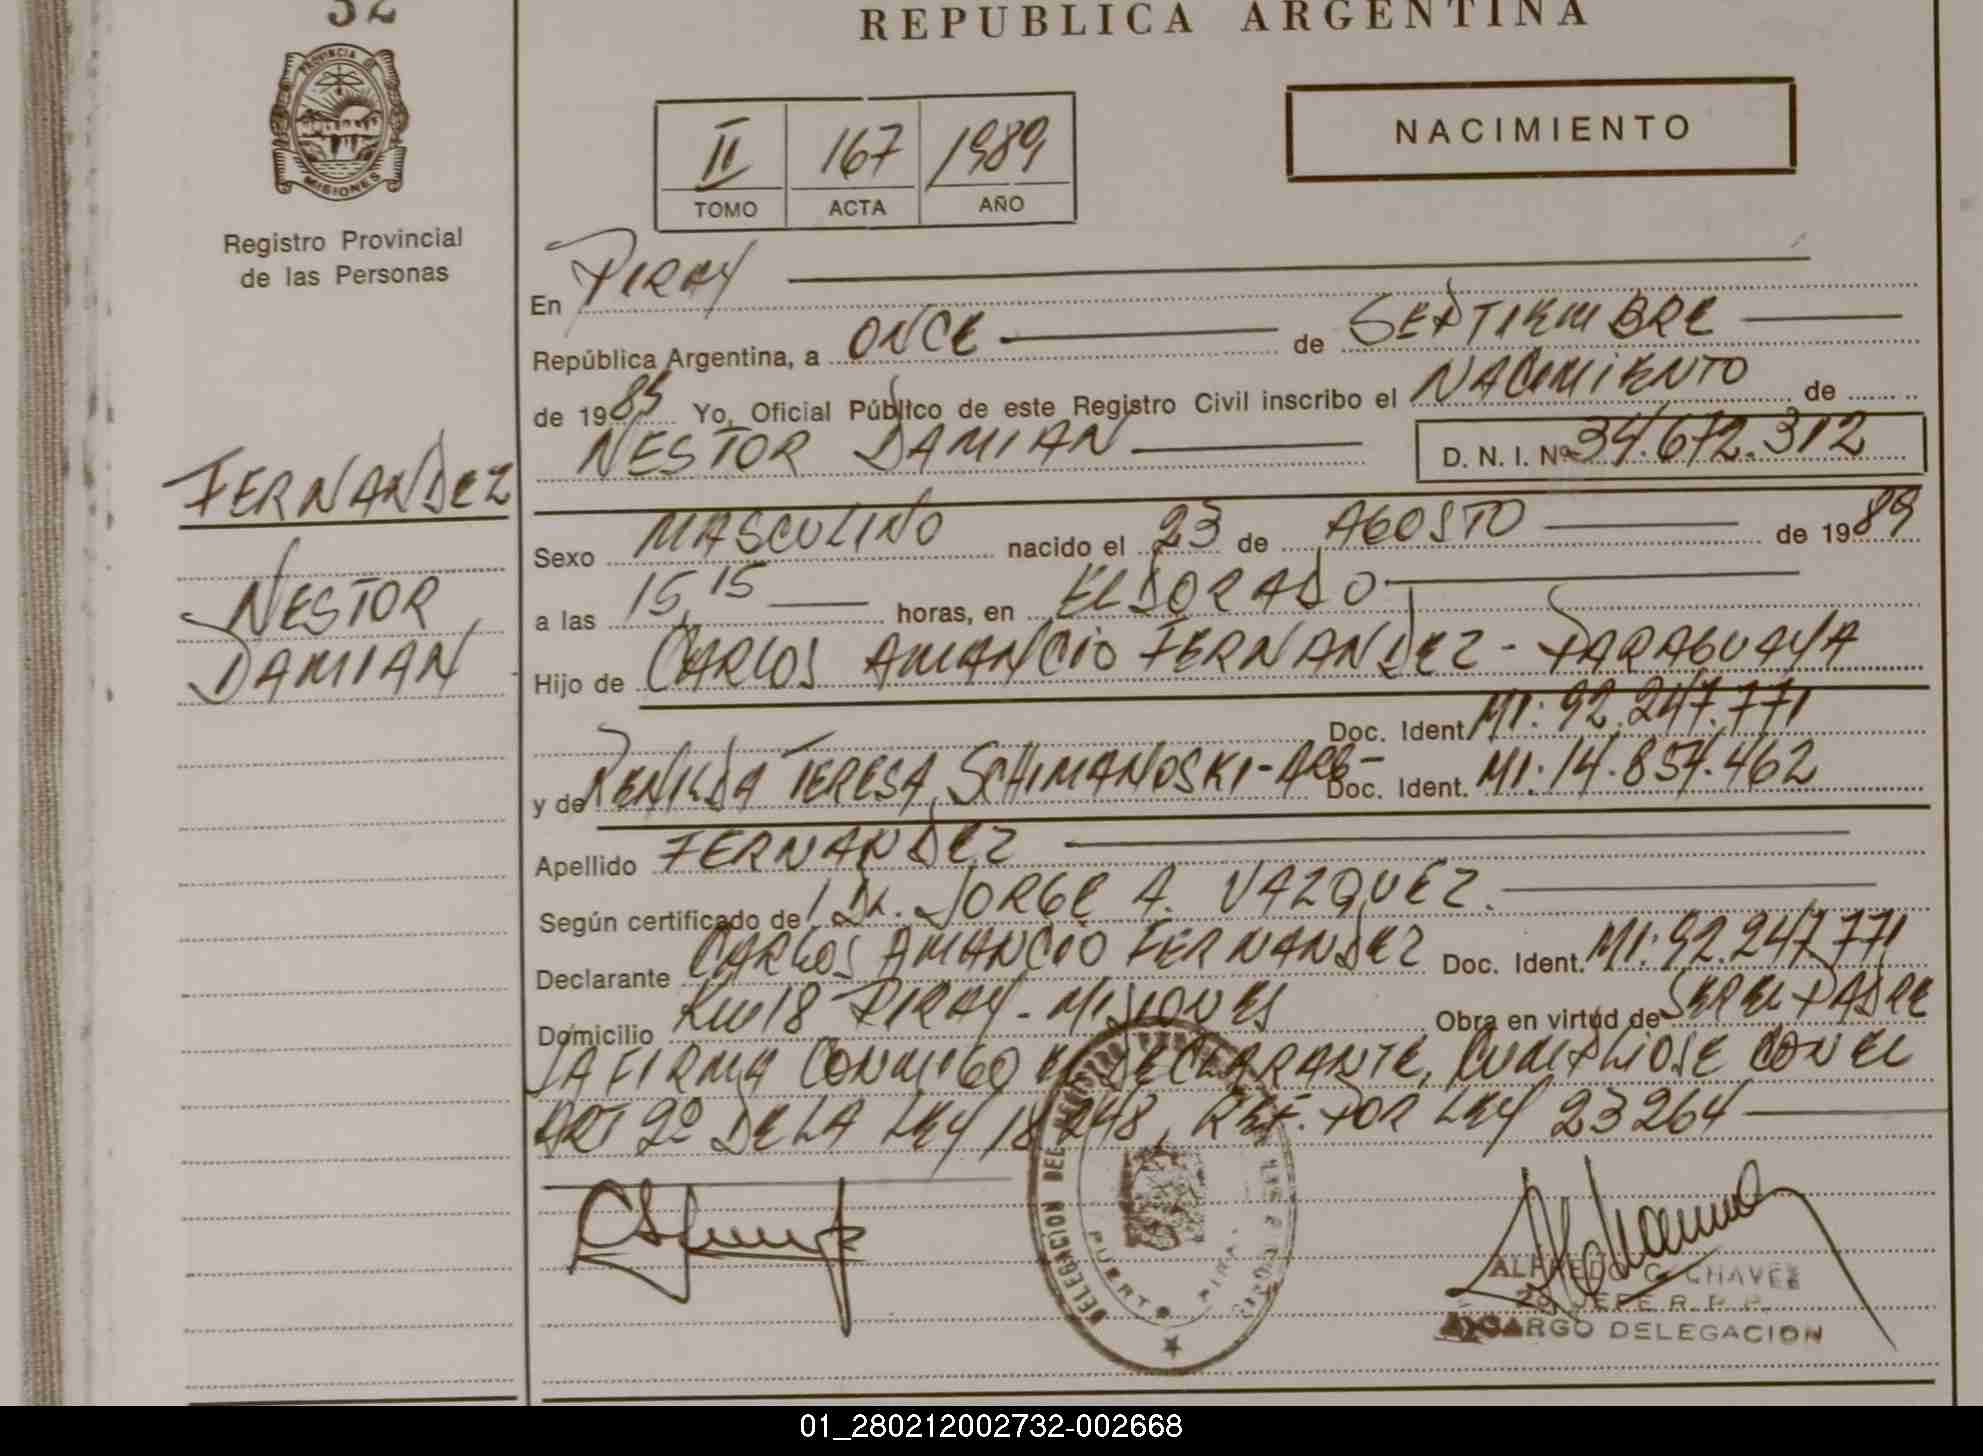 32
REPUBLICA ARGENTINA
PROVINCIA DE
MISIONES
Registro Provincial
de las Personas
II 167 1989
TOMO ACTA AÑO
NACIMIENTO
En PIRAY
República Argentina, a ONCE de SEPTIEMBRE
de 1989 Yo, Oficial Público de este Registro Civil inscribo el NACIMIENTO de
NESTOR DAMIAN D. N. I. Nº 34.672.312
FERNANDEZ
NESTOR
DAMIAN
Sexo MASCULINO nacido el 23 de AGOSTO de 1989
a las 15,15 horas, en ELDORADO
Hijo de CARLOS AMANCIO FERNANDEZ - PARAGUAYA
Doc. Ident. MI: 92.247.771
y de RENILDA TERESA SCHIMANOSKI - ARG - Doc. Ident. MI: 14.854.462
Apellido FERNANDEZ
Según certificado de DR. JORGE A. VAZQUEZ.
Declarante CARLOS AMANCIO FERNANDEZ Doc. Ident. MI: 92.247.771
Domicilio Km 18 PIRAY - MISIONES Obra en virtud de SER EL PADRE
LA FIRMA CONMIGO EL DECLARANTE, CUMPLIOSE CON EL
ART 2º DE LA LEY 18248, REF. POR LEY 23264
DELEGACION DEL REGISTRO
PUERTO PIRAY
ALFREDO C. CHAVEZ
2º JEFE R. P. P.
A/CARGO DELEGACION
01_280212002732-002668